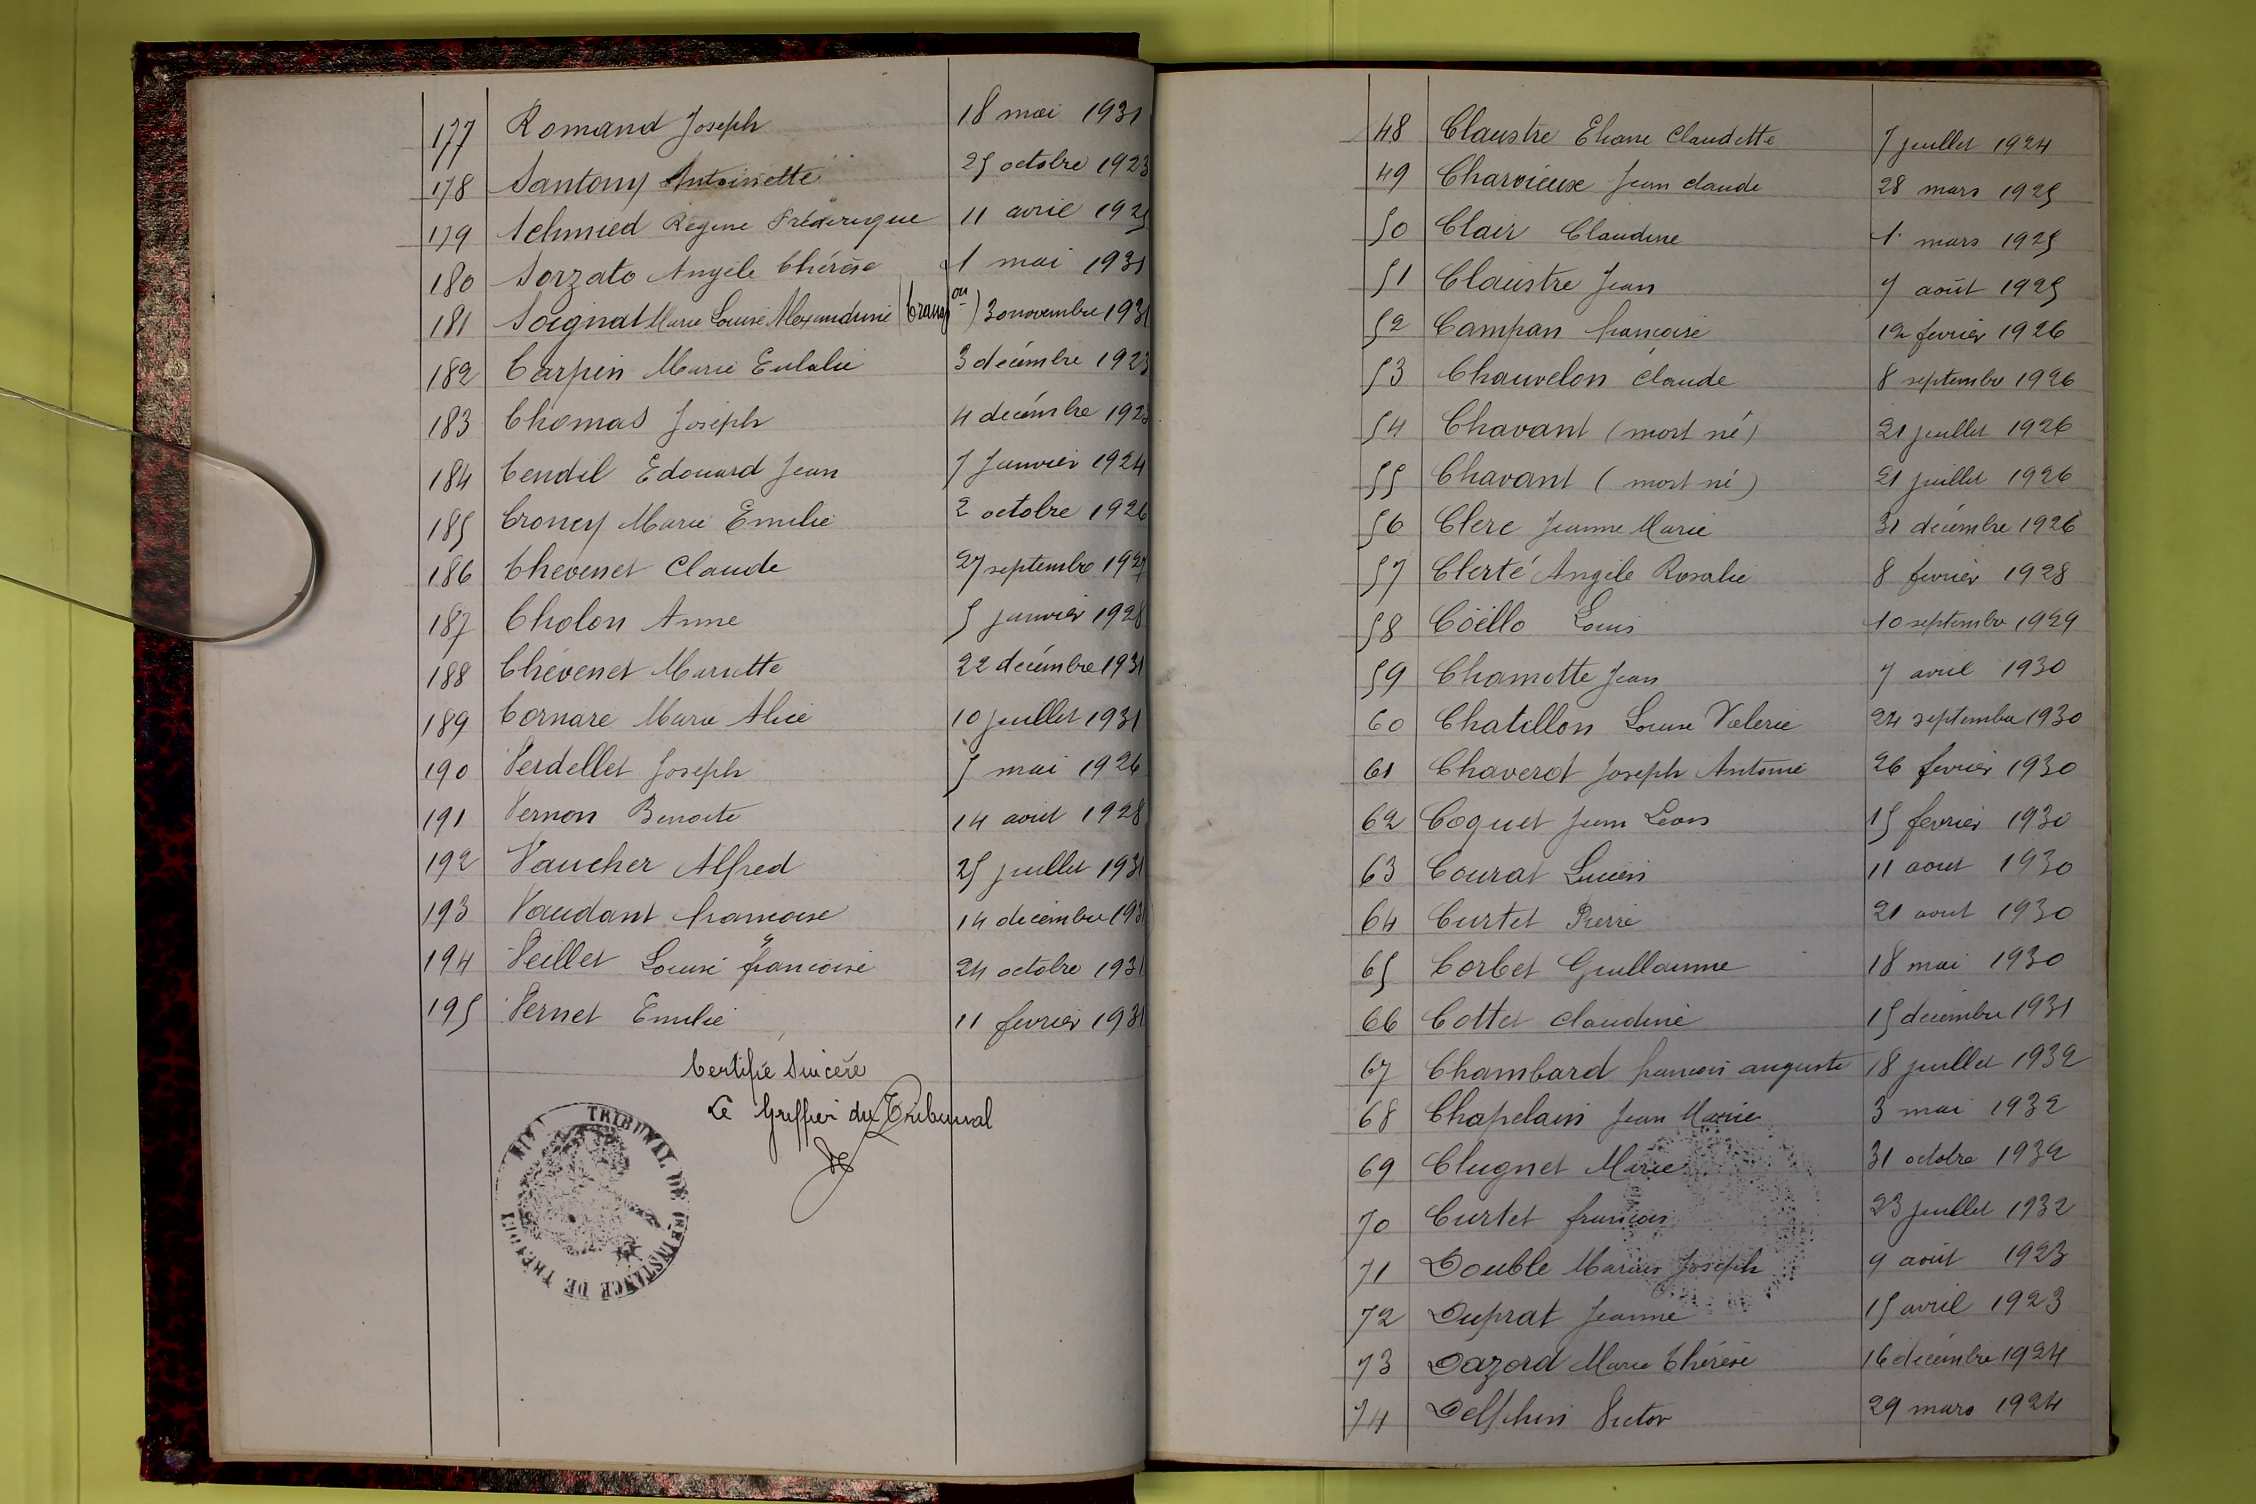 177 Romand Joseph 18 mai 1931
178 Santony Antoinette 25 octobre 1923
179 Schmied Régine Frédérique 11 avril 1925
180 Sorzato Angèle Thérèse 1 mai 1931
181 Soignat Marie Louise Alexandrine ( ou ) 30 novembre 1931
182 Tarpin Marie Eulalie 3 décembre 1923
183 Thomas Joseph 4 décembre 1923
184 Tendil Edouard Jean 7 Janvier 1924
185 Troncy Marie Emilie 2 octobre 1926
186 Thevenet Claude 27 septembre 1927
187 Tholon Anne 5 janvier 1928
188 Thévenet Mariette 22 décembre 1931
189 Tornare Marie Alice 10 juillet 1931
190 Verdellet Joseph 5 mai 1926
191 Vernon Benoite 14 aout 1928
192 Vaucher Alfred 25 juillet 1931
193 Vaudant françoise 14 décembre 1931
194 Veillet Louise françoise 24 octobre 1931
195 Vernet Emilie 11 fevrier 1931
Certifié Sincère
Le Greffier du Tribunal
TRIBUNAL DE 1RE INSTANCE DE TRÉVOUX
48 Claustre Eliane Claudette 7 juillet 1924
49 Charvieux Jean claude 28 mars 1925
50 Clair Claudine 1 mars 1925
51 Claustre Jean 7 août 1925
52 Campan françoise 12 fevrier 1926
53 Chauvelon Claude 8 septembre 1926
54 Chavant (mort né) 21 juillet 1926
55 Chavant (mort né) 21 juillet 1926
56 Clerc Jeanne Marie 31 décembre 1926
57 Clerté Angèle Rosalie 8 fevrier 1928
58 Coëllo Louis 10 septembre 1929
59 Chamotte Jean 7 avril 1930
60 Chatillon Louise Valerie 24 septembre 1930
61 Chaverot Joseph Antoine 26 fevrier 1930
62 Coquet Jean Léon 15 fevrier 1930
63 Courat Lucien 11 aout 1930
64 Curtet Pierre 21 aout 1930
65 Corbet Guillaume 18 mai 1930
66 Cottet Claudine 15 décembre 1931
67 Chambard francois auguste 18 juillet 1932
68 Chapelain Jean Marie 3 mai 1932
69 Clugnet Marie 31 octobre 1932
70 Curtet françois 23 juillet 1932
71 Double Marius Joseph 9 août 1923
72 Duprat Jeanne 15 avril 1923
73 Dazord Marie Thérèse 16 décembre 1924
74 Delphin Victor 29 mars 1924